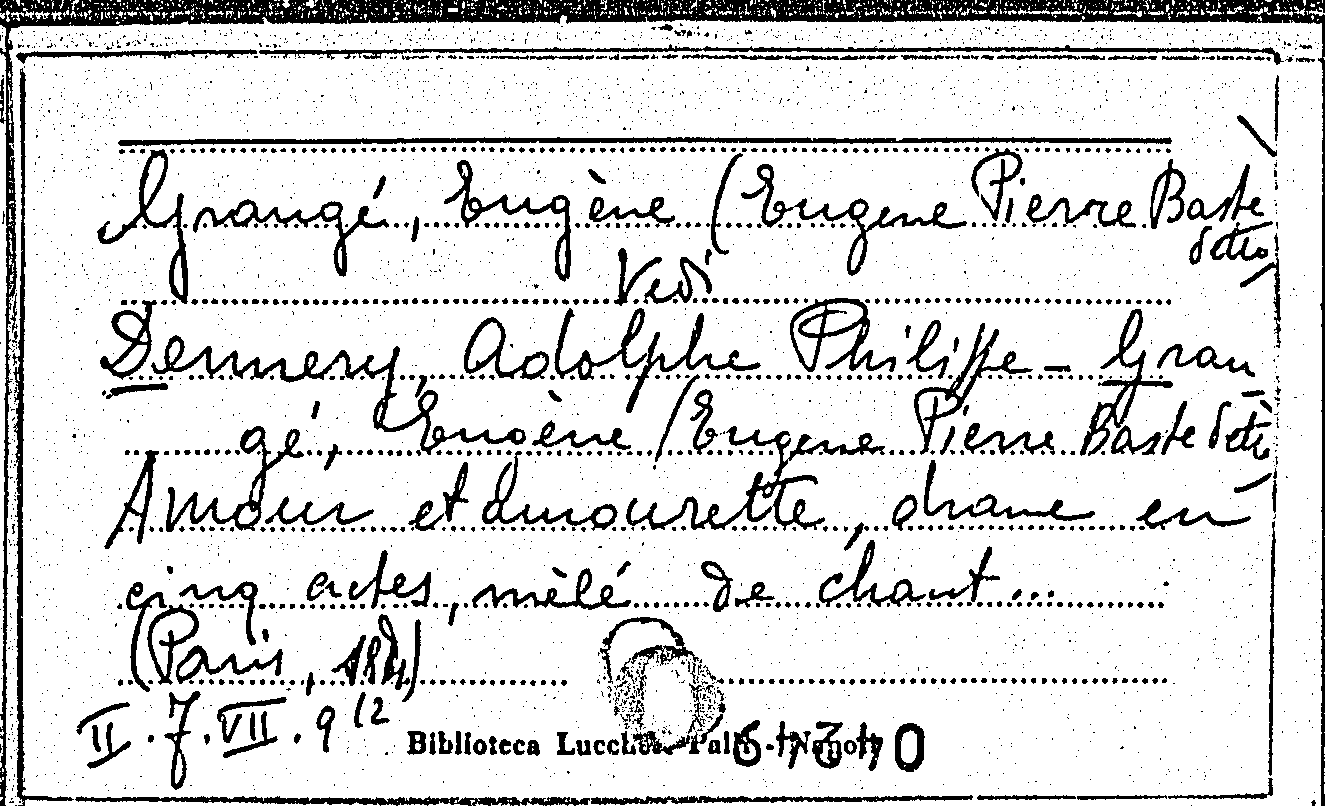 Grangé, Eugène (Eugene Pierre Baste
detto
Vedi
Dennery, Adolphe Philippe - Gran
gé, Eugène (Eugene Pierre Baste detto
Amour et amourette, drame en
cinq actes, mèlé de chant...
(Paris,
II. 7. VII. 9 (2
Biblioteca Lucchesi Palli - Napoli